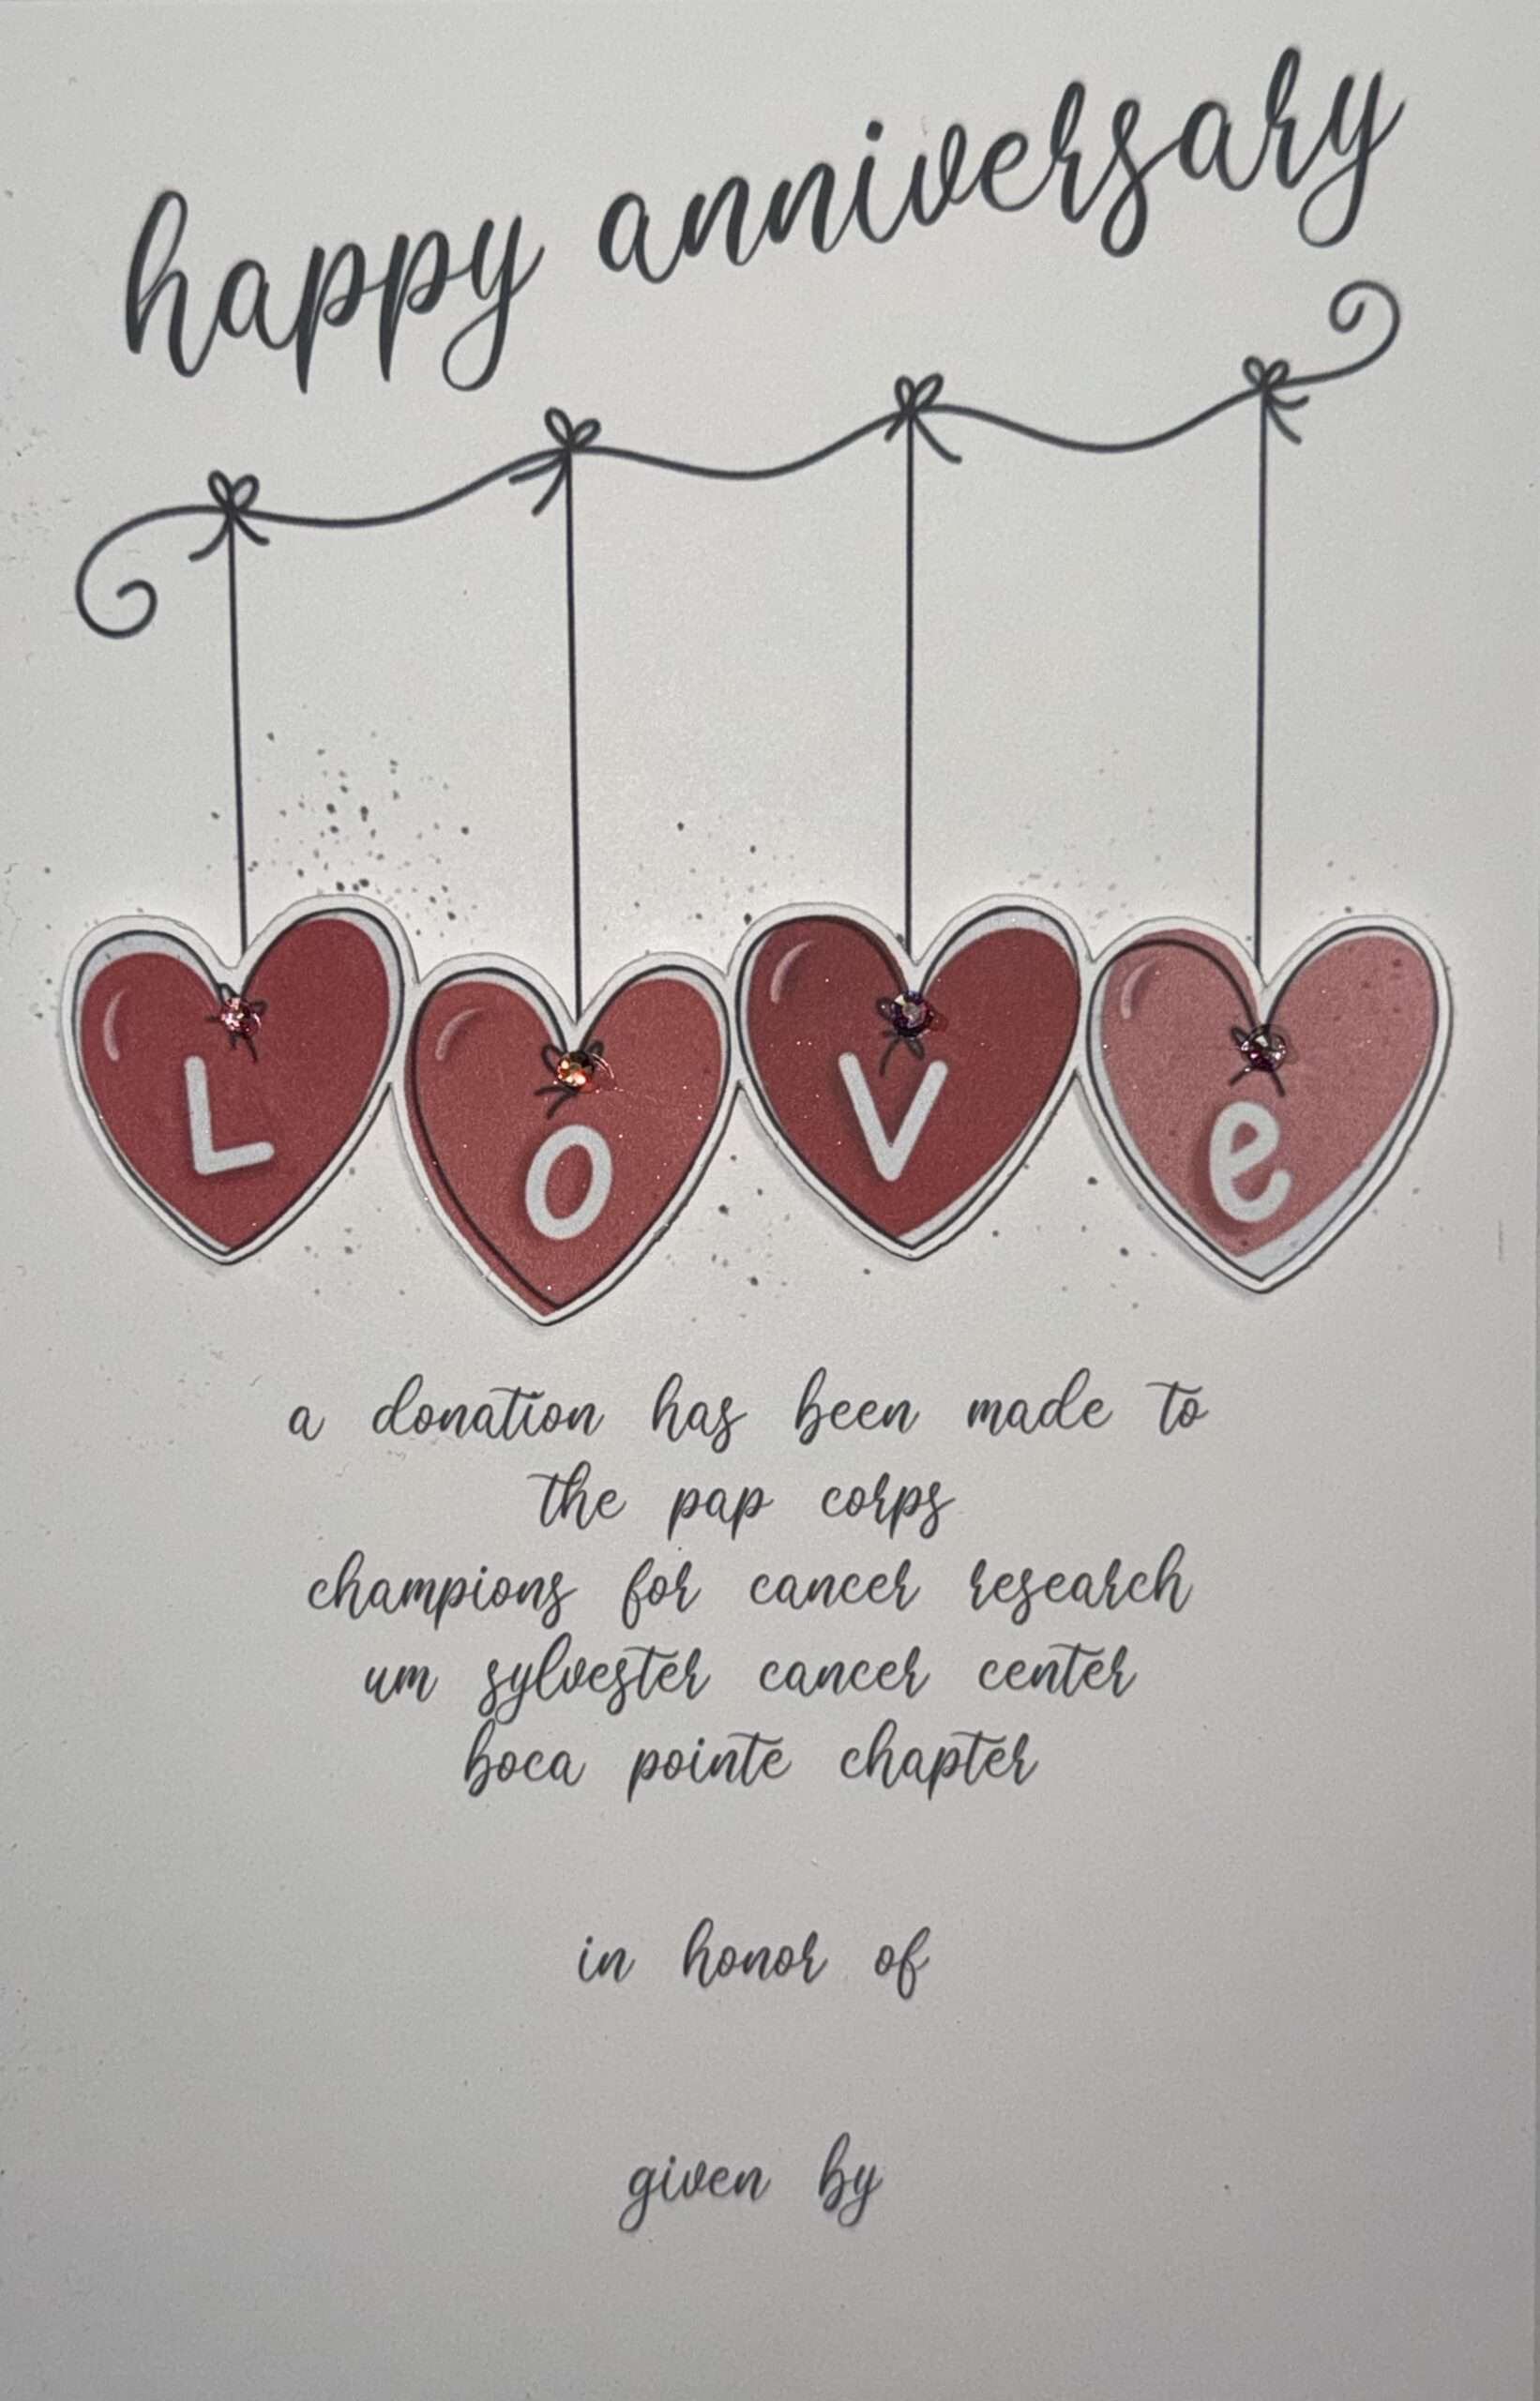 happy anniversary
L o V e
a donation has been made to
the pap corps
champions for cancer research
um sylvester cancer center
boca pointe chapter
in honor of
given by